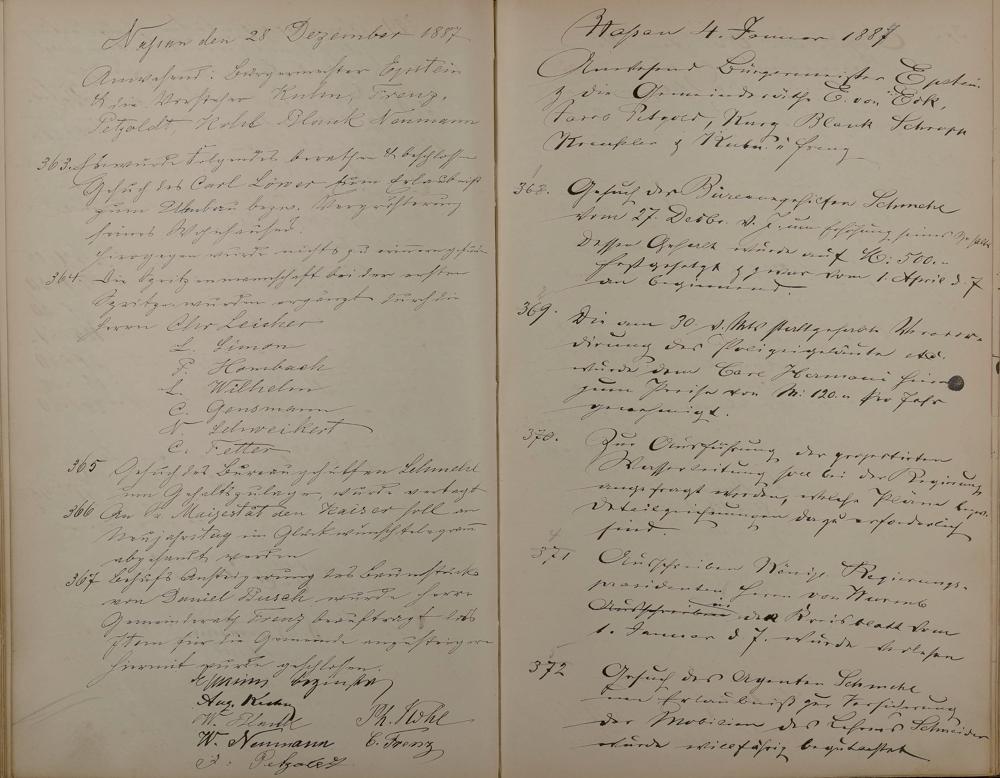 Nassau den 28 Dezember 1887
Anwesend: Bürgermeister Epstein
& die Vorsteher Kuhn, Frenz,
Petzoldt, Kohl Blank Neumann
363. Es wurde Folgendes berathen & beschlossen
Gesuch des Carl Löwer um Erlaubniß
zum Umbau bezw. Vergrößerung
seines Wohnhauses.
Hiergegen wurde nichts zu erinnern gefunden
364. Die Spritzenmannschaft bei der ersten
Spritze wurden ergänzt durch die
Herrn Chr Leicher
L. Simon
F. Hombach
L. Wilhelm
C. Gensmann
W. Schweikert
C. Fetter
365 Gesuch des Bureaugehülfen Schmehl
um Gehaltszulage, wurde vertagt
366 An S. Majestät den Kaiser soll am
Neujahrstag ein Glückwunschtelegramm
abgesandt werden
367 Behufs Ansteigerung des Grundstücks
von Daniel Busch wurde Herr
Gemeinderath Frenz beauftragt das
Item für die Gemeinde anzusteigern
Hiermit wurde geschlossen.
Aug. Kuhn
W. Blank Ph. Kohl
W. Neumann C. Frenz
F. Petzoldt
Nassau 4. Januar 1887
Anwesend Bürgermeister Epstein
& die Gemeinderäthe E. von Eck,
Petzold, Kurz Blank Schrupp
& Kuhn u Frenz
368. Gesuch des Büreaugehilfen Schmehl
vom 27. Dezbr. v. J. um Erhöhung seines Gehalts
Dessen Gehalt wurde auf M: 500.-
festgesetzt & zwar vom 1. April d. J
an beginnend.
369. Die am 30 v. Mts stattgehabte
des Polizeigeläute
wurde dem Carl Hermani hier
zum Preise von M: 120.- pro Jahr
genehmigt.
370. Zur Ausführung der projectirten
Wasserleitung soll bei der Regierung
angefragt werden, welche Pläne bezw.
Detailzeichnungen dazu erforderlich
sind.
371 Ausschreiben Königl. Regierungs-
präsidenten Herrn von Wurmb
Ausschreiben der Kreisblatt vom
1. Januar d J. wurde verlesen
372 Gesuch des Agenten Schmehl
um Erlaubniß zur Versicherung
der Mobilien des Lehrers Schneider
wurde willfährig begutachtet